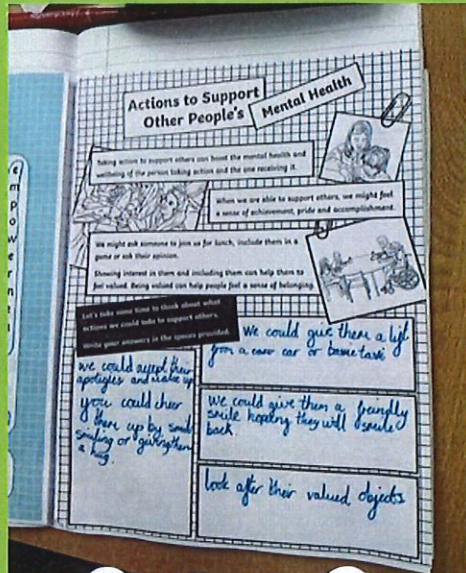 Actions to Support
Other People's
Mental Health
Taking action to support others can boost the mental health and
wellbeing of the person taking action and the one receiving it.
When we are able to support others, we might feel
a sense of achievement, pride and accomplishment.
We might ask someone to join us for lunch, include them in a
game or ask their opinion.
Showing interest in them and including them can help them to
feel valued. Being valued can help people feel a sense of belonging.
Let's take some time to think about what
actions we could take to support others.
Write your answers in the spaces provided.
we could accept their
apoligies and make up
you could cheer
them up by
smiling or giving them
a hug.
We could give them a lift
from a car or
We could give them a friendly
smile hoping they will smile
back.
look after their valued objects